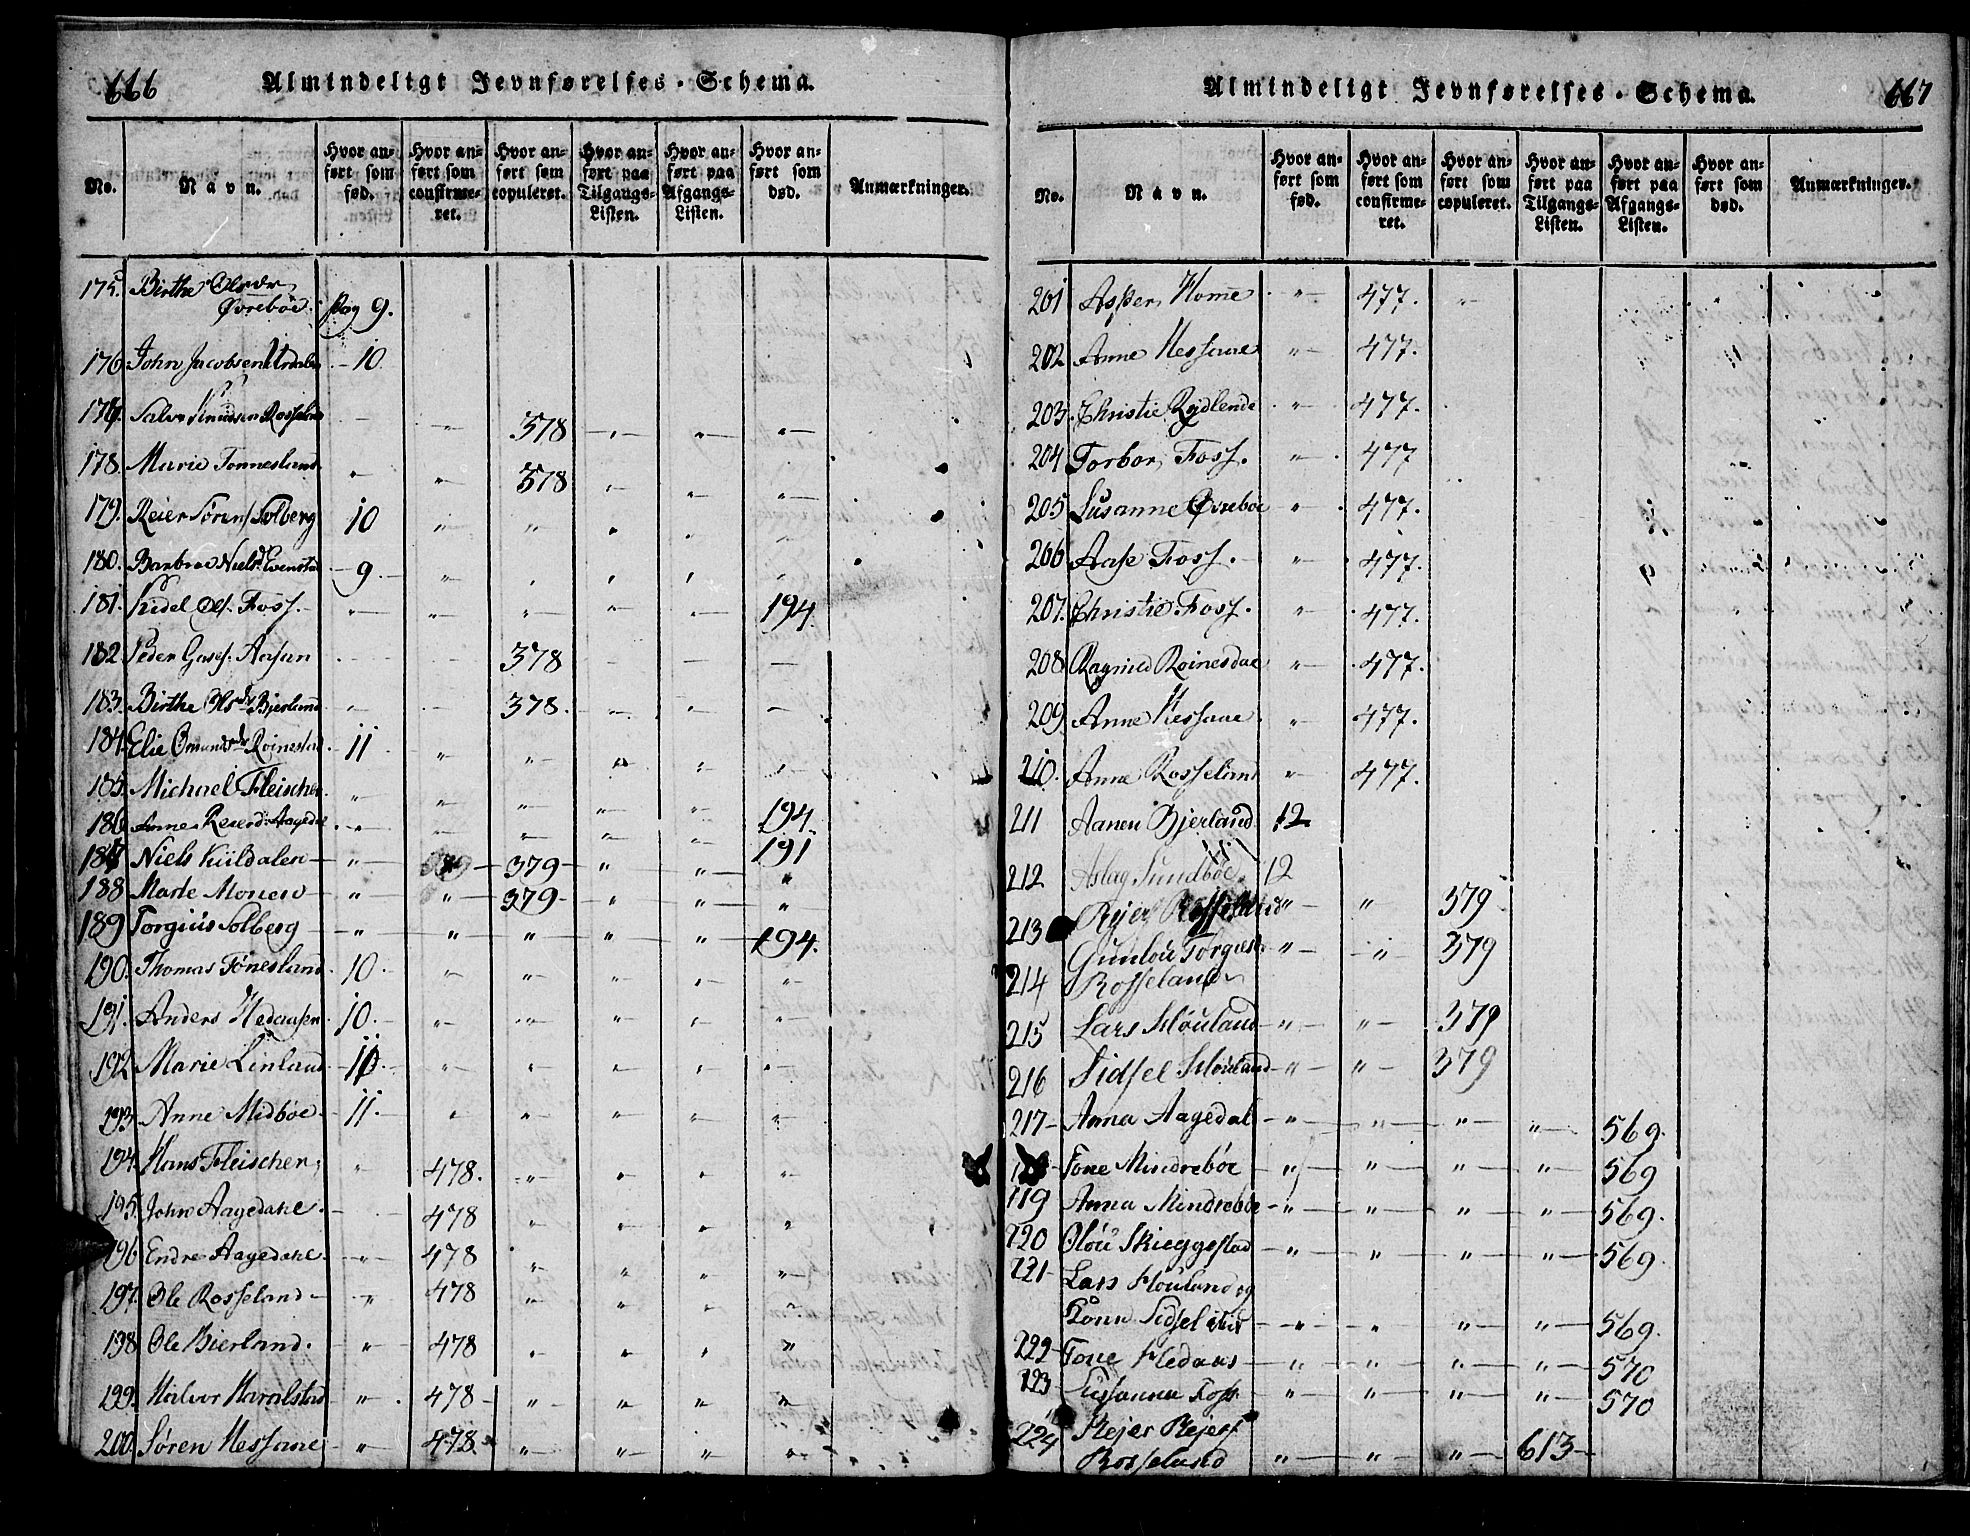 666 Almindeligt Jevnførelses-Schema.
No. Navn. Hvor anført som fød. Hvor anført som confirmeret. Hvor anført som copuleret. Hvor anført paa Tilgangs-Listen. Hvor anført paa Afgangs-Listen. Hvor anført som død. Anmærkninger.
175. Birthe Olsdr
Øvrebøe. Pag 9.
176 John Jacobsen - 10.
177. Salve Knudsen Rosseland - " 378 " " "
178. Marie Tonnesland " " 378 " " "
179. Reier Sørens. Solberg 10 " " " " "
180. Barbroe Niels d. Evenstad 9 " " " " "
181. Kidel Ols. Foss. " " " " " 194
182 Peder Gases. Aasan - - 378 - - -
183. Birthe Olsdr Bjerland " " 378. " " "
184. Elie Omundsdr Roinestad 11 " " " " "
185. Michael Fleischer. " " " " " 194.
186 Anne Reiersd. Aagedal " " " " " 191
187 Niels Kiildalen " 379 " " "
188 Marte Monen " " 379 " " "
189 Torgius Solberg " " " " " 194.
190. Thomas Tónesland 10. " " " " "
191. Anders Hedausen 10. " " " " "
192 Marie Linland 11 " " " " "
193. Anne Midbøe 11. " " " " "
194. Hans Fleischer " 478. " " " "
195. John Aagedahl. - 478 " " " "
196 Endre Aagedahl. " 478 " " " "
197. Ole Rosseland " 478 " " " "
198 Ole Bierland. " 478 " " " "
199. Halvor Haralstad " 478 " " " "
200. Søren Hessaae " 478 " " " "
Almindeligt Jevnførelses-Schema. 667
No. Navn. Hvor anført som fød. Hvor anført som confirmeret. Hvor anført som copuleret. Hvor anført paa Tilgangs-Listen. Hvor anført paa Afgangs-Listen. Hvor anført som død. Anmærkninger.
201 Asper Home " 477. "
202 Anne Hessaae " 477.
203. Christie Røjdlende " 477.
204 Torbor Foss. " 477
205 Susanne Øvrebøe " 477.
206 Aase Foss. " 477.
207. Christie Foss. " 477.
208 Ragnied Roinesdae " 477.
209 Anne Hessaae " 477.
210. Anne Rosseland " 477.
211 Aanen Bjerland 12
212 Aslag Sundbøe 12
213 Rejer Rosseland " " 379
214 Gunlou Torgiesd.
Rosseland " " 379
215 Lars Flöuland " " 379
216 Sidsel Flöuland " " 379
217 Anna Aagedal " " " " 569.
Tone Mindrebøe " " " " 569
119 Anna Mindrebøe " " " " 569.
220 Olöu Skieggestad " " " " 569.
221 Lars Flöuland og
Kone Sidsel " " " " 569.
222 Tone Hedaas " " " " 570
223 Susanna Foss. " " " " 570
224 Rejer Rejers.
Rosseland " " " 613